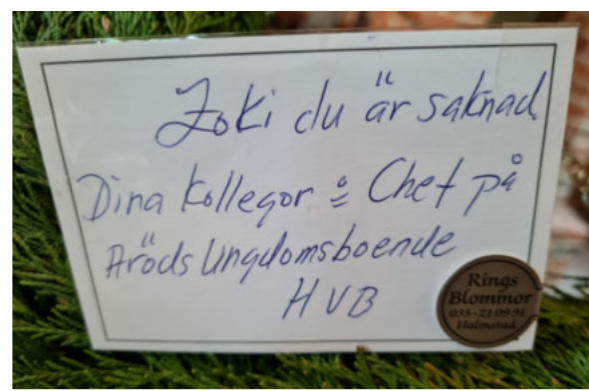 Zoki du är saknad
Dina kollegor & Chef på
Aröds Ungdomsboende
HVB
Rings
Blommor
035-21 09 91
Halmstad